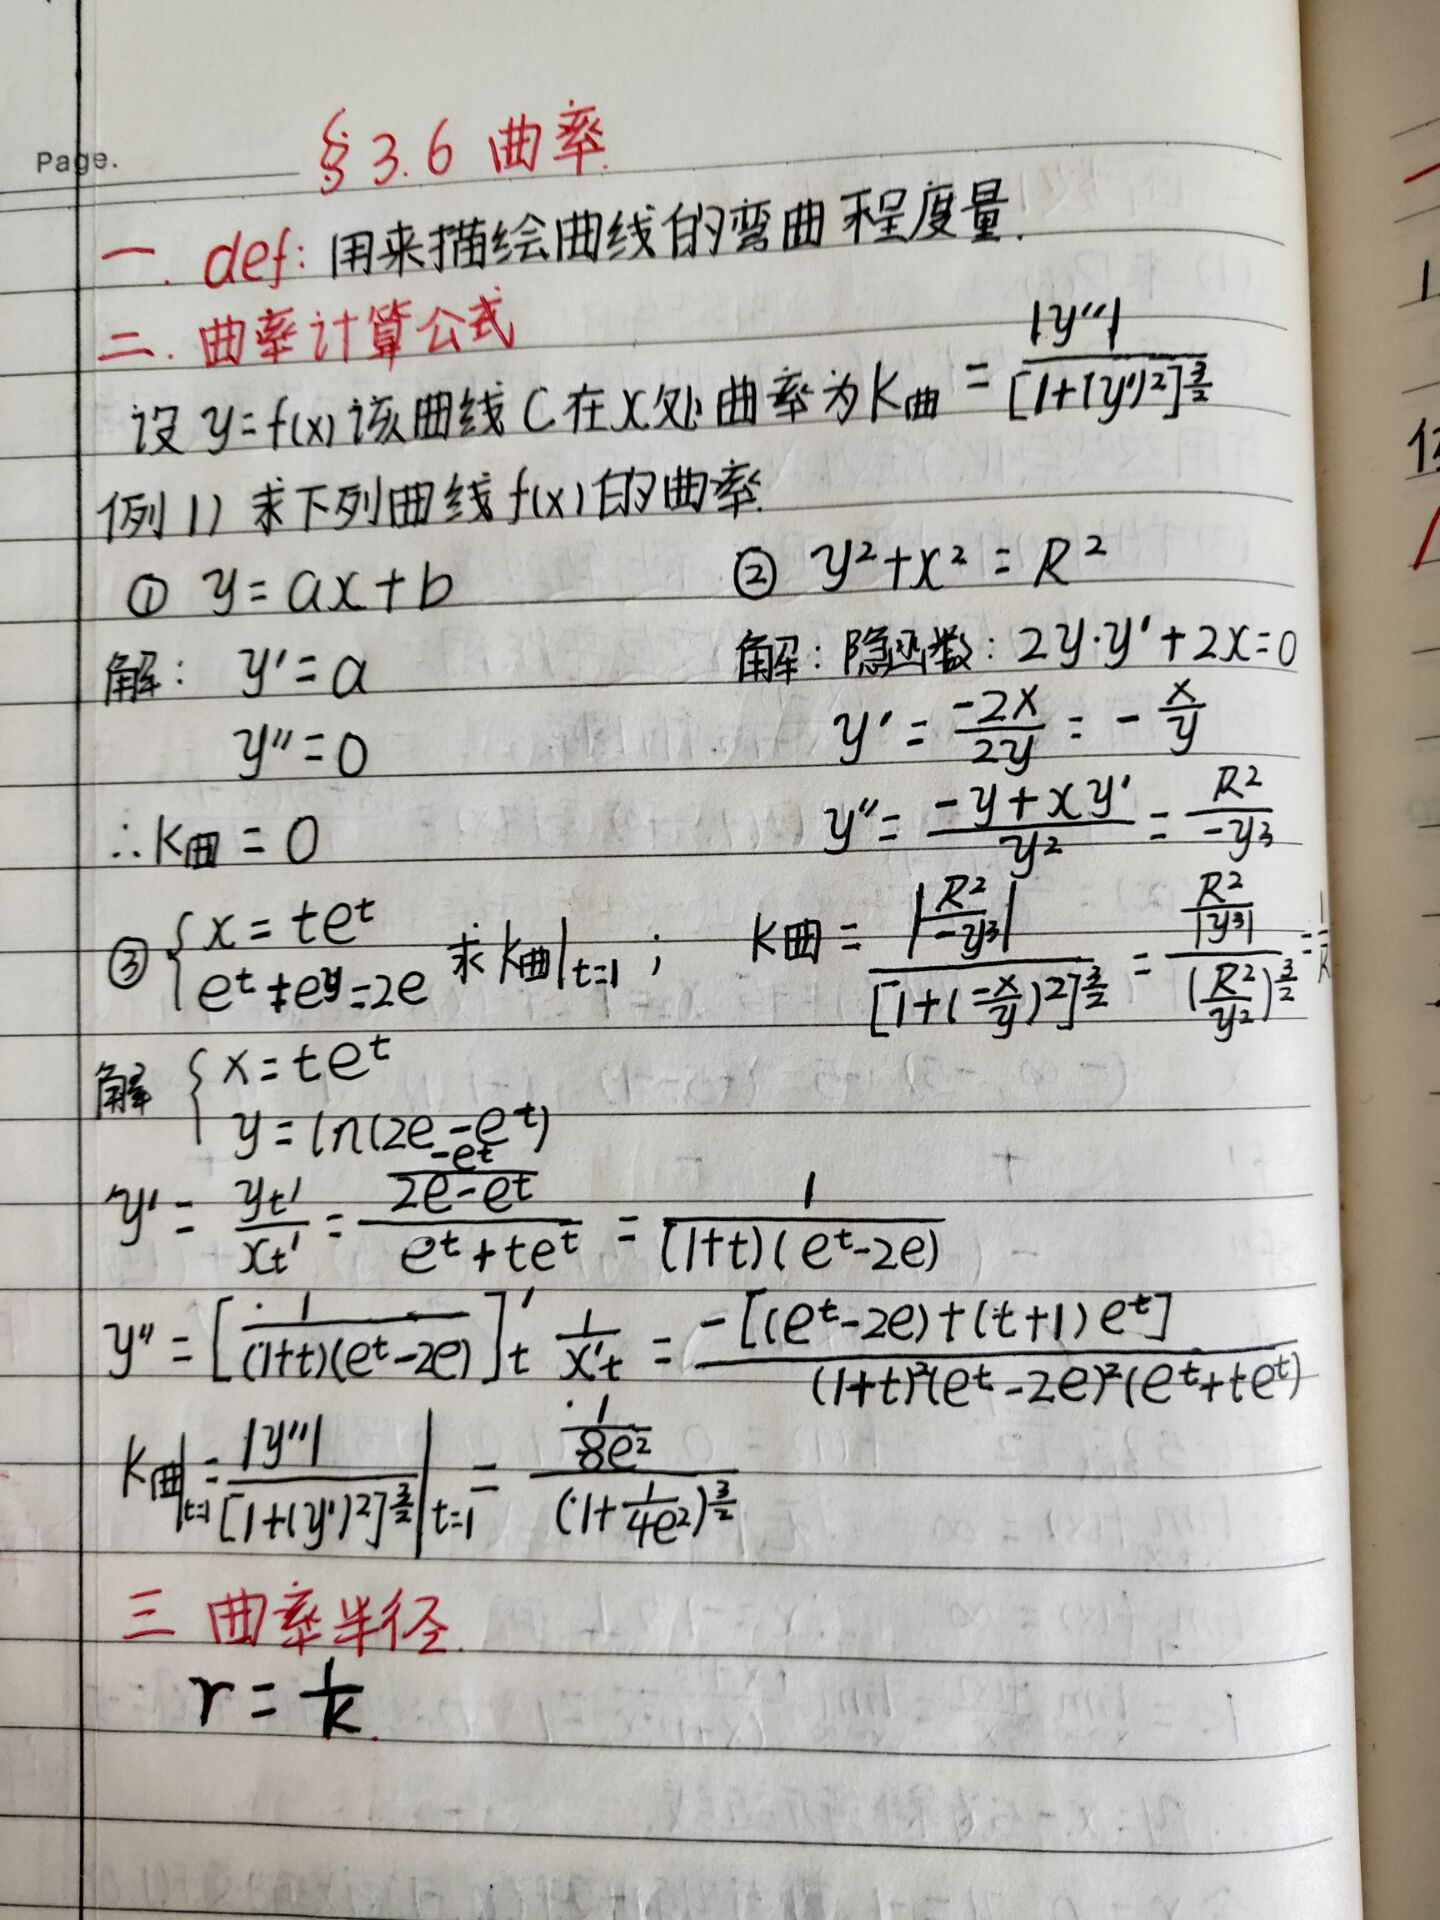 Page.
§3.6 曲率.
一. def: 用来描绘曲线的弯曲程度量.
二. 曲率计算公式
设 y=f(x) 该曲线 C 在 x 处曲率为 K曲 = |y''| / [1+(y')²]^(3/2)
例1) 求下列曲线 f(x) 的曲率.
① y=ax+b ② y²+x²=R²
解: y'=a 解: 隐函数: 2y·y'+2x=0
y''=0 y' = -2x/2y = -x/y
∴K曲=0 y'' = (-y+xy')/y² = R²/-y³
③ {x=te^t, e^t+e^y=2e 求 K曲|t=1 ; K曲 = |R²/-y³| / [1+(-x/y)²]^(3/2) = (R²/|y³|) / (R²/y²)^(3/2) = 1/R
解 {x=te^t
y=ln(2e-e^t)
y' = yt'/xt' = (-e^t/(2e-e^t)) / (e^t+te^t) = 1/((1+t)(e^t-2e))
y'' = [1/((1+t)(e^t-2e))]'t 1/x't = -[(e^t-2e)+(t+1)e^t] / ((1+t)²(e^t-2e)²(e^t+te^t))
K曲|t=1 = |y''| / [1+(y')²]^(3/2) |t=1 = (1/8e²) / (1+1/4e²)^(3/2)
三 曲率半径.
r = 1/k.